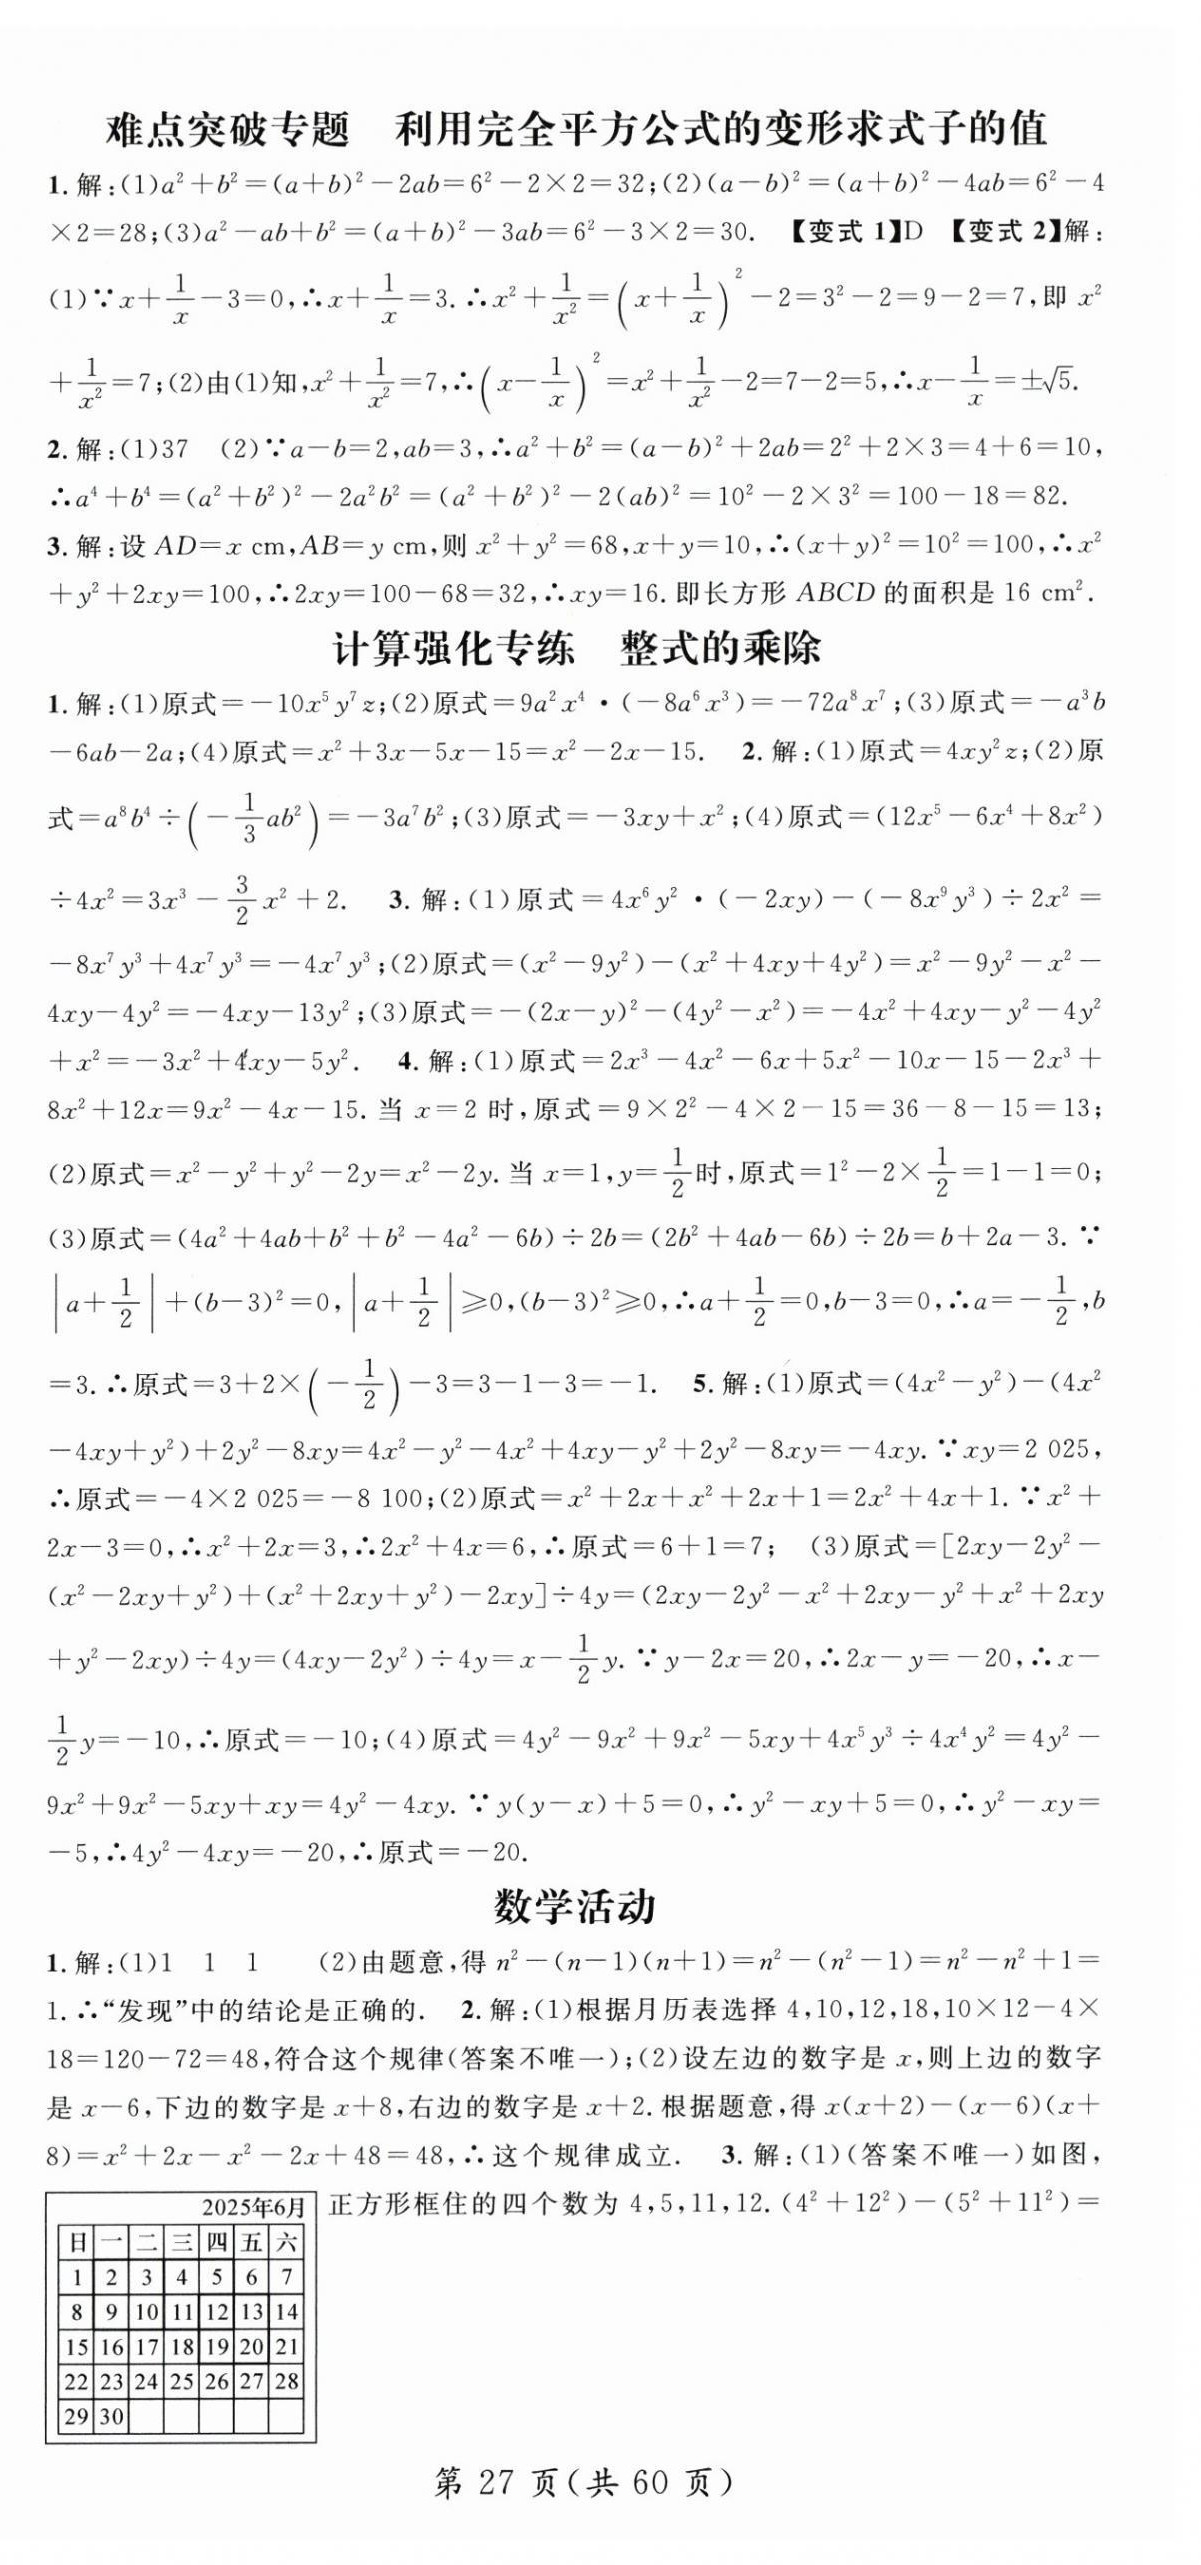 难点突破专题 利用完全平方公式的变形求式子的值
1. 解:(1)a²+b²=(a+b)²-2ab=6²-2×2=32;(2)(a-b)²=(a+b)²-4ab=6²-4
×2=28;(3)a²-ab+b²=(a+b)²-3ab=6²-3×2=30. 【变式1】D 【变式2】解:
(1)∵x+1/x-3=0,∴x+1/x=3.∴x²+1/x²=(x+1/x)²-2=3²-2=9-2=7,即 x²
+1/x²=7;(2)由(1)知,x²+1/x²=7,∴(x-1/x)²=x²+1/x²-2=7-2=5,∴x-1/x=±√5.
2. 解:(1)37 (2)∵a-b=2,ab=3,∴a²+b²=(a-b)²+2ab=2²+2×3=4+6=10,
∴a⁴+b⁴=(a²+b²)²-2a²b²=(a²+b²)²-2(ab)²=10²-2×3²=100-18=82.
3. 解:设 AD=x cm,AB=y cm,则 x²+y²=68,x+y=10,∴(x+y)²=10²=100,∴x²
+y²+2xy=100,∴2xy=100-68=32,∴xy=16.即长方形 ABCD 的面积是 16 cm².
计算强化专练 整式的乘除
1. 解:(1)原式=-10x⁵y⁷z;(2)原式=9a²x⁴·(-8a⁶x³)=-72a⁸x⁷;(3)原式=-a³b
-6ab-2a;(4)原式=x²+3x-5x-15=x²-2x-15. 2. 解:(1)原式=4xy²z;(2)原
式=a⁸b⁴÷(-1/3ab²)=-3a⁷b²;(3)原式=-3xy+x²;(4)原式=(12x⁵-6x⁴+8x²)
÷4x²=3x³-3/2x²+2. 3. 解:(1)原式=4x⁶y²·(-2xy)-(-8x⁹y³)÷2x²=
-8x⁷y³+4x⁷y³=-4x⁷y³;(2)原式=(x²-9y²)-(x²+4xy+4y²)=x²-9y²-x²-
4xy-4y²=-4xy-13y²;(3)原式=-(2x-y)²-(4y²-x²)=-4x²+4xy-y²-4y²
+x²=-3x²+4xy-5y². 4. 解:(1)原式=2x³-4x²-6x+5x²-10x-15-2x³+
8x²+12x=9x²-4x-15.当 x=2 时,原式=9×2²-4×2-15=36-8-15=13;
(2)原式=x²-y²+y²-2y=x²-2y.当 x=1,y=1/2时,原式=1²-2×1/2=1-1=0;
(3)原式=(4a²+4ab+b²+b²-4a²-6b)÷2b=(2b²+4ab-6b)÷2b=b+2a-3.∵
|a+1/2|+(b-3)²=0,|a+1/2|≥0,(b-3)²≥0,∴a+1/2=0,b-3=0,∴a=-1/2,b
=3.∴原式=3+2×(-1/2)-3=3-1-3=-1. 5. 解:(1)原式=(4x²-y²)-(4x²
-4xy+y²)+2y²-8xy=4x²-y²-4x²+4xy-y²+2y²-8xy=-4xy.∵xy=2 025,
∴原式=-4×2 025=-8 100;(2)原式=x²+2x+x²+2x+1=2x²+4x+1.∵x²+
2x-3=0,∴x²+2x=3,∴2x²+4x=6,∴原式=6+1=7; (3)原式=[2xy-2y²-
(x²-2xy+y²)+(x²+2xy+y²)-2xy]÷4y=(2xy-2y²-x²+2xy-y²+x²+2xy
+y²-2xy)÷4y=(4xy-2y²)÷4y=x-1/2y.∵y-2x=20,∴2x-y=-20,∴x-
1/2y=-10,∴原式=-10;(4)原式=4y²-9x²+9x²-5xy+4x⁵y³÷4x⁴y²=4y²-
9x²+9x²-5xy+xy=4y²-4xy.∵y(y-x)+5=0,∴y²-xy+5=0,∴y²-xy=
-5,∴4y²-4xy=-20,∴原式=-20.
数学活动
1. 解:(1)1 1 1 (2)由题意,得 n²-(n-1)(n+1)=n²-(n²-1)=n²-n²+1=
1.∴“发现”中的结论是正确的. 2. 解:(1)根据月历表选择 4,10,12,18,10×12-4×
18=120-72=48,符合这个规律(答案不唯一);(2)设左边的数字是 x,则上边的数字
是 x-6,下边的数字是 x+8,右边的数字是 x+2.根据题意,得 x(x+2)-(x-6)(x+
8)=x²+2x-x²-2x+48=48,∴这个规律成立. 3. 解:(1)(答案不唯一)如图,
正方形框住的四个数为 4,5,11,12.(4²+12²)-(5²+11²)=
2025年6月
日 一 二 三 四 五 六
1 2 3 4 5 6 7
8 9 10 11 12 13 14
15 16 17 18 19 20 21
22 23 24 25 26 27 28
29 30
第 27 页(共 60 页)